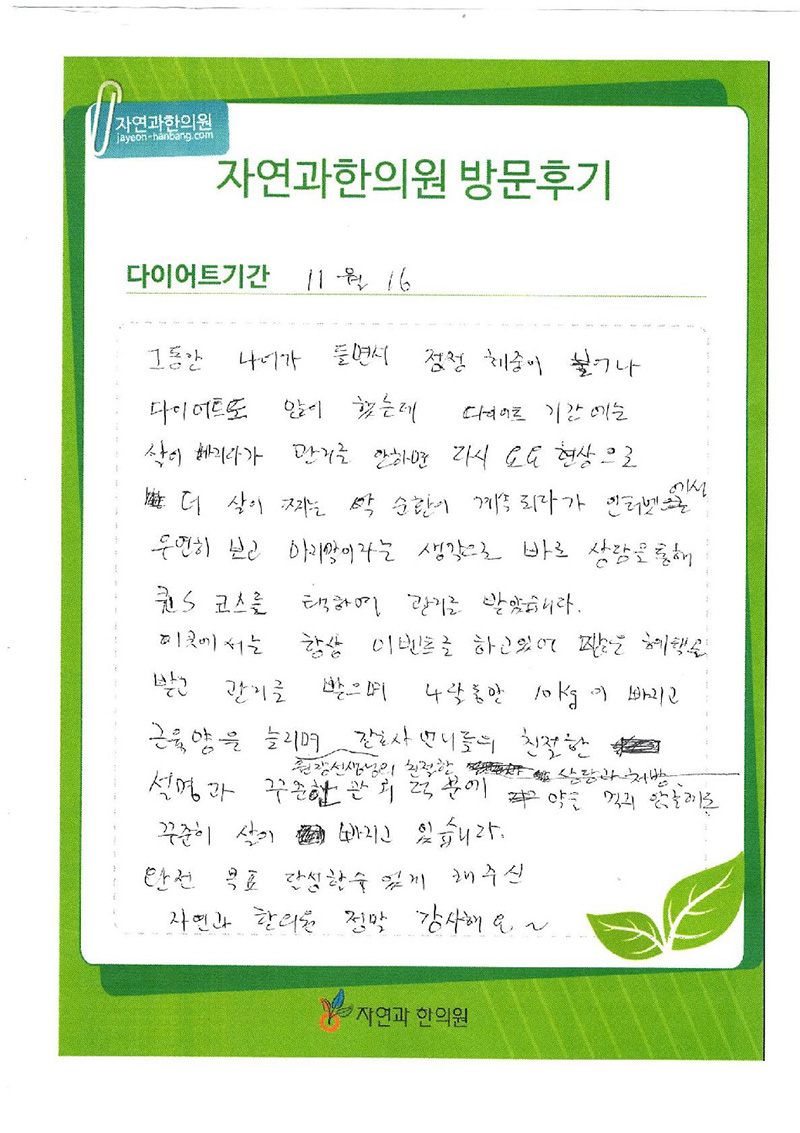 자연과한의원
jayeon-hanbang.com
자연과한의원 방문후기
다이어트기간 11월 16
그동안 나이가 들면서 점점 체중이 불어나
다이어트도 많이 했는데 다이어트 기간에는
살이 빠지다가 관리를 안하면 다시 요요 현상으로
더 살이 찌는 악 순환이 계속되다가 인터넷에서
우연히 보고 마지막이라는 생각으로 바로 상담을 통해
퀸S 코스를 택하여 관리를 받았습니다.
이곳에서는 항상 이벤트를 하고있어 많은 혜택을
받고 관리를 받으며 4달동안 10kg이 빠지고
근육양을 늘리며 간호사 언니들의 친절한
원장선생님의 친절한 상담과 처방
설명과 꾸준한 관리 덕분에 약을 먹지 않을때도
꾸준히 살이 빠지고 있습니다.
안전 목표 달성할수 있게 해주신
자연과 한의원 정말 감사해요~
자연과 한의원